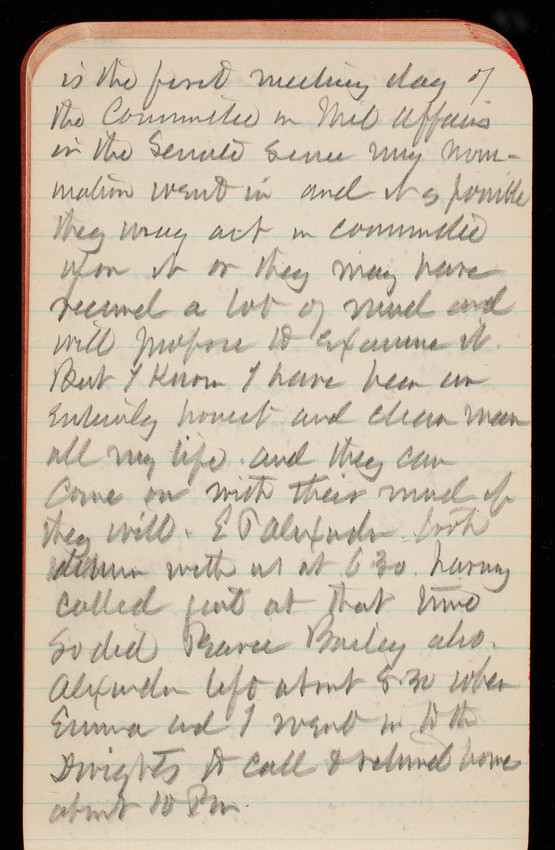 is the first meeting day of
the Committee on Mil Affairs
in the Senate since my nom-
ination went in and it is possible
they may act in committee
upon it or they may have
received a lot of mud and
will propose to examine it.
But I know I have been an
entirely honest and clean man
all my life. and they can
come on with their mud if
they will. E P Alexander took
dinner with us at 6 30. having
called just at that time
So did Pearce Bailey also.
Alexander left about 8.30 when
Emma and I went in to the
Dwights to call & returned home
about 10 Pm